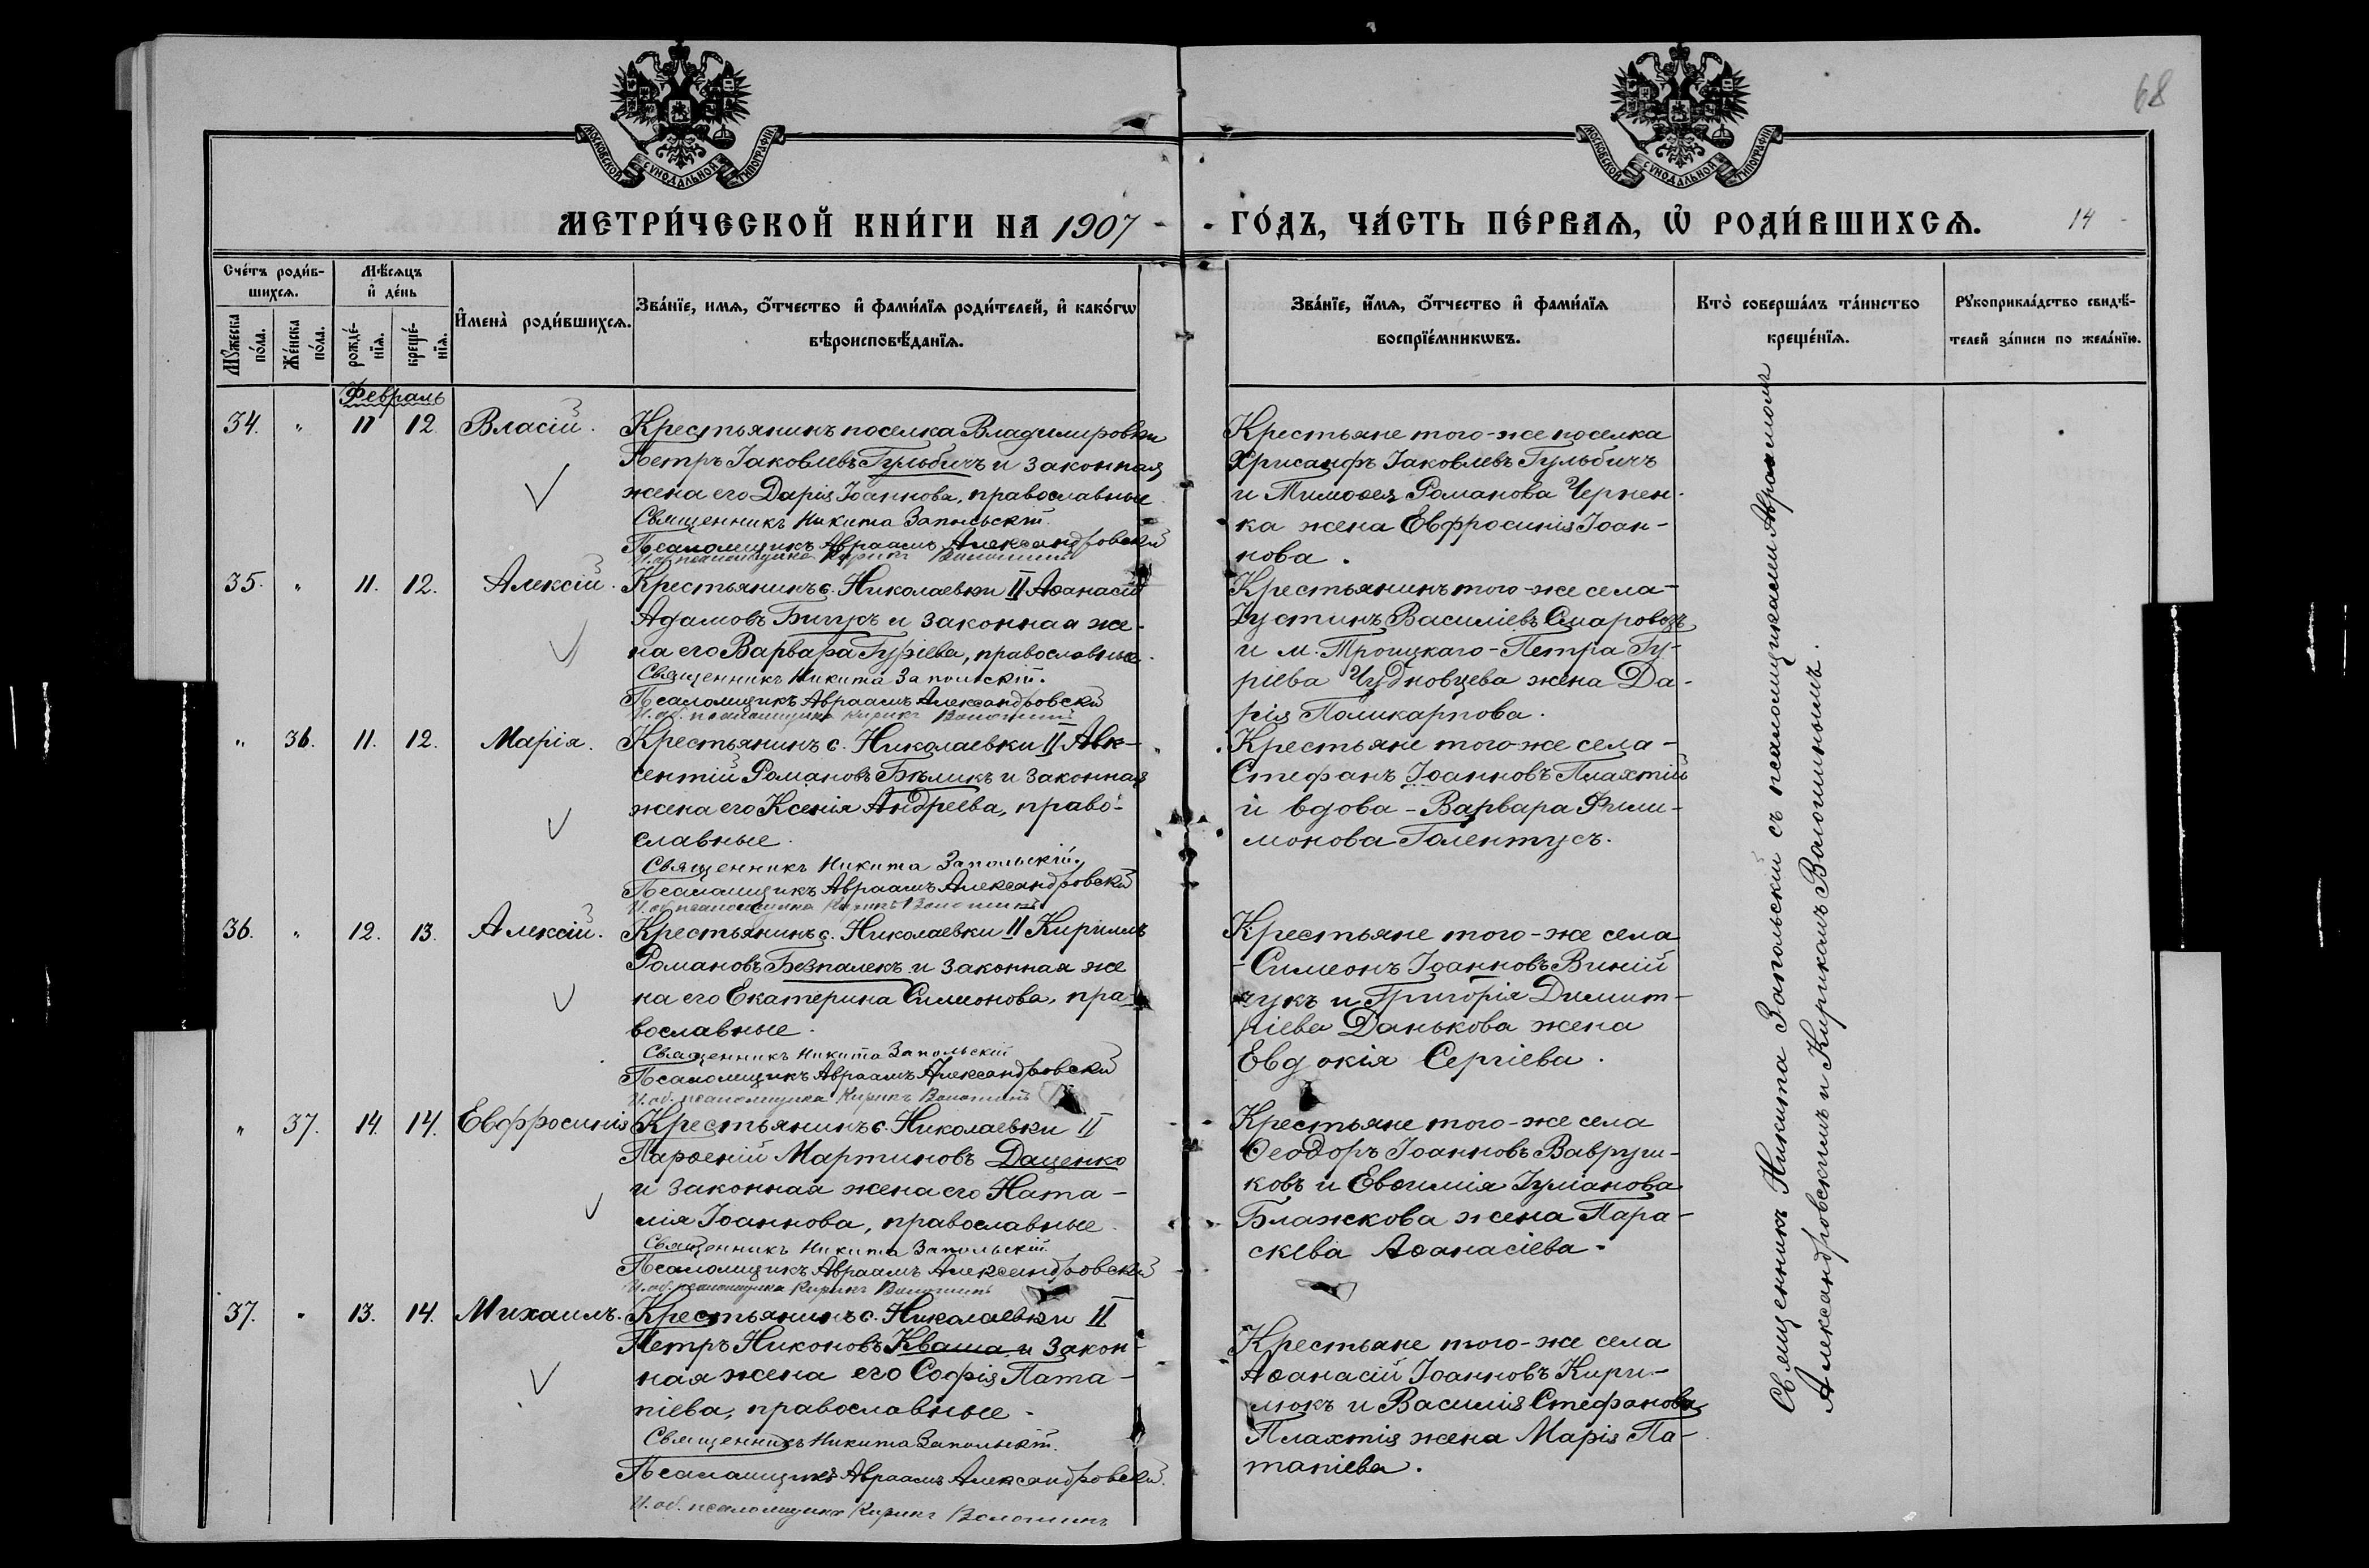 68
МОСКОВСКОЙ СУНОДАЛЬНОЙ ТИПОГРАФІИ
МОСКОВСКОЙ СУНОДАЛЬНОЙ ТИПОГРАФІИ
МЕТРИ́ЧЕСКОЙ КНИ́ГИ НА 1907
ГО́ДЪ, ЧА́СТЬ ПЕ́РВАѦ, Ѡ҆ РОДИ́ВШИХСѦ. 14
Сче́тъ роди́в-
шихсѧ.
Мꙋ́жеска по́ла.
Же́нска по́ла.
Мѣ́сѧцъ
и҆ де́нь
рожде́-
нїѧ.
креще́-
нїѧ.
И҆мена̀ роди́вшихсѧ.
Зва́нїе, имѧ, ѻ҆́тчество и҆ фами́лїѧ роди́телей, и҆ како́гѡ
вѣроисповѣ́данїѧ.
Зва́нїе, и҆́мѧ, ѻ҆́тчество и҆ фами́лїѧ
воспрїе́мникѡвъ.
Кто̀ соверша́лъ та́инство
креще́нїѧ.
Рꙋкоприкла́дство свидѣ́-
телей за́писи по жела́нїю.
Февраль
34. " 11 12. Власій.
Крестьянинъ поселка Владимировки
Петръ Іаковлевъ Гульбичъ и законная
жена его Дарія Іоаннова, православные
Священникъ Никита Запольскій.
Псаломщикъ Авраамъ Александровскій
И. об. псаломщика Кирикъ Волошинъ
Крестьяне того-же поселка
Хрисанфъ Іаковлевъ Гульбичъ
и Тимоѳея Романова Чернен-
ка жена Евфросинія Іоан-
нова.
35. " 11. 12. Алексій.
Крестьянинъ с. Николаевки II Аѳанасій
Адамовъ Бигусъ и законная же-
на его Варвара Гуріева, православные.
Священникъ Никита Запольскій.
Псаломщикъ Авраамъ Александровскій
И. об. псаломщика Кирикъ Волошинъ
Крестьянинъ того-же села-
Іустинъ Василіевъ Смаровозъ
и м. Троицкаго-Петра Гу-
ріева Чудновцева жена Да-
рія Поликарпова.
" 36. 11. 12. Марія.
Крестьянинъ с. Николаевки II Авк-
сентій Романовъ Бѣликъ и законная
жена его Ксенія Андреева, право-
славные.
Священникъ Никита Запольскій.
Псаломщикъ Авраамъ Александровскій
И. об. псаломщика Кирикъ Волошинъ
Крестьяне того-же села-
Стефанъ Іоанновъ Плахтій
и вдова-Варвара Фили-
монова Галентусъ.
36. " 12. 13. Алексій.
Крестьянинъ с. Николаевки II Кириллъ
Романовъ Безпалекъ и законная же
на его Екатерина Симеонова, пра-
вославные.
Священникъ Никита Запольскій
Псаломщикъ Авраамъ Александровскій
И. об. псаломщика Кирикъ Волошинъ
Крестьяне того-же села
-Симеонъ Іоанновъ Виній
чукъ и Григорія Димит-
ріева Данькова жена
Евдокія Сергіева.
" 37. 14. 14. Евфросинія
Крестьянинъ с. Николаевки II
Парѳеній Мартиновъ Даценко
и законная жена его Ната-
лія Іоаннова, православные.
Священникъ Никита Запольскій.
Псаломщикъ Авраамъ Александровскій
И. об. псаломщика Кирикъ Волошинъ
Крестьяне того-же села
Ѳеодоръ Іоанновъ Вавруш-
ковъ и Евѳимія Іуліанова
Блажкова жена Пара-
скева Аѳанасіева.
37. " 13. 14. Михаилъ.
Крестьянинъ с. Николаевки II
Петръ Никоновъ Кваша и закон-
ная жена его Софія Пата-
піева, православные-
Священникъ Никита Запольскій.
Псаломщикъ Авраамъ Александровскій.
И. об. псаломщика Кирикъ Волошинъ
Крестьяне того-же села
Аѳанасій Іоанновъ Кири-
люкъ и Василія Стефанова
Плахтія жена Марія Па-
тапіева.
Священникъ Никита Запольскій съ псаломщиками Авраамомъ
Александровскимъ и Кирикомъ Волошинымъ.